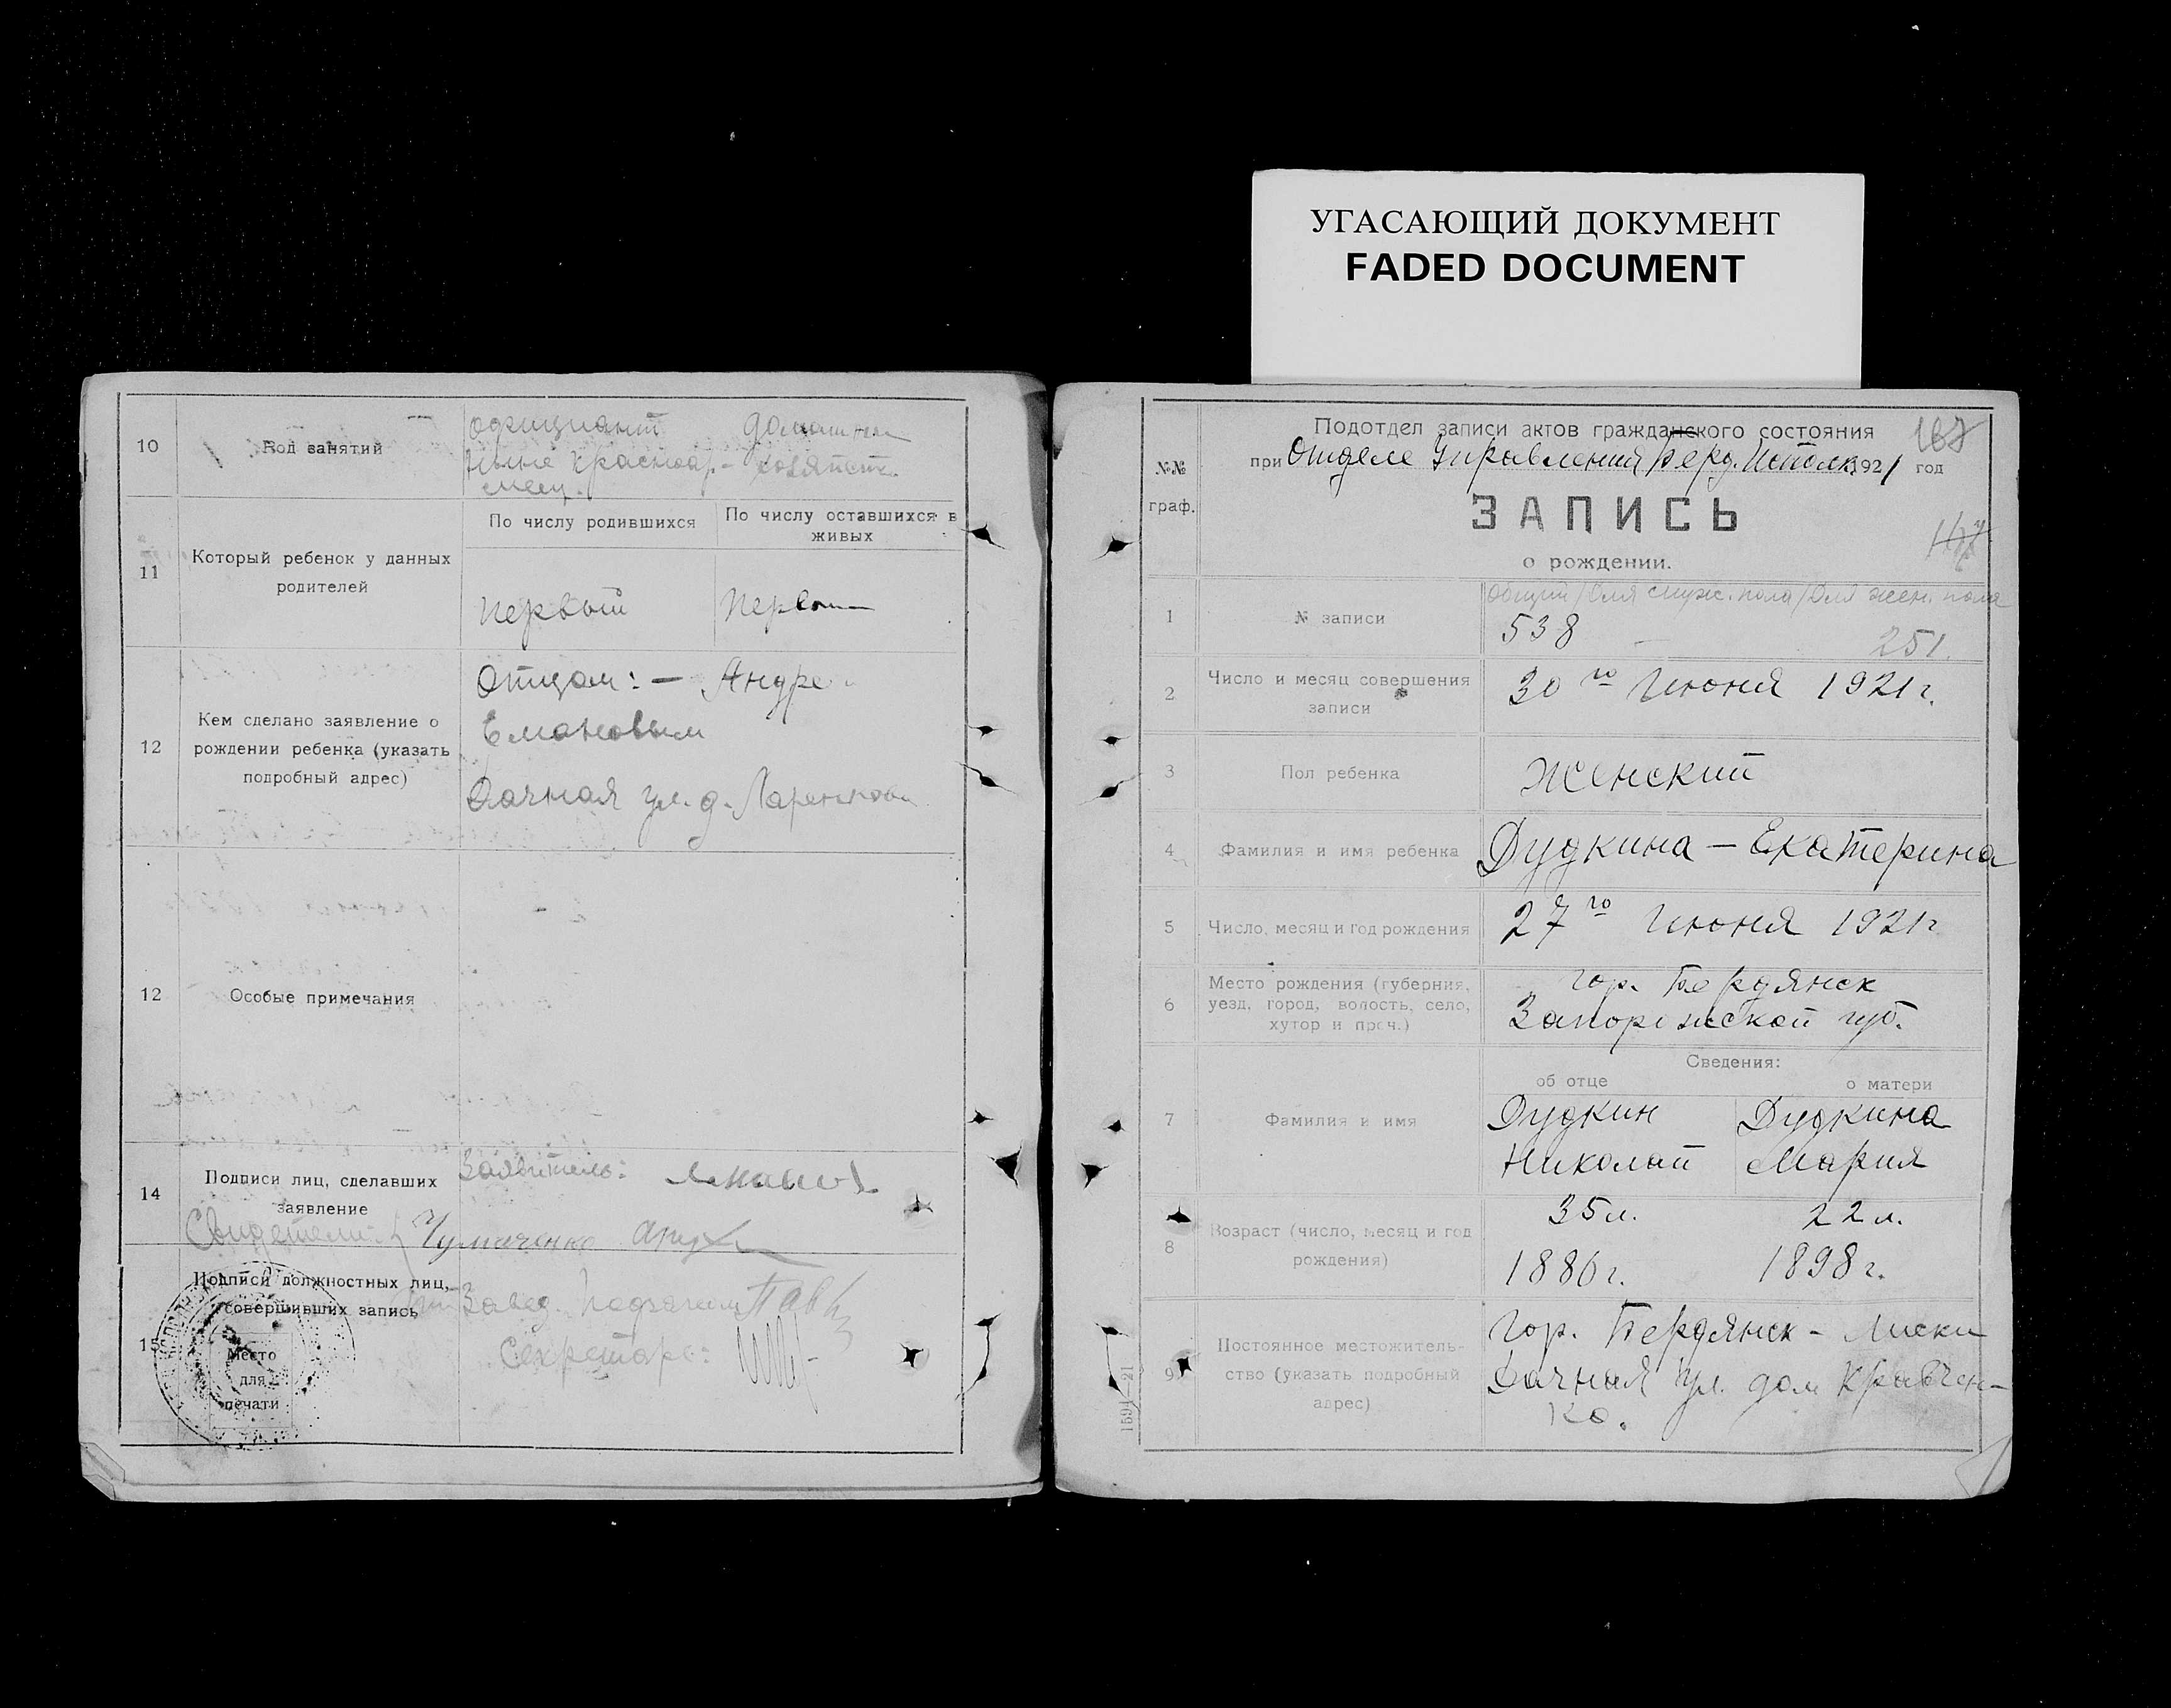 УГАСАЮЩИЙ ДОКУМЕНТ
FADED DOCUMENT
10
Род занятий
официант
домашнее
ныне красноар-
хозяйств.
меец.
11
Который ребенок у данных
родителей
По числу родившихся
По числу оставшихся в
живых
Первый
Первый
12
Кем сделано заявление о
рождении ребенка (указать
подробный адрес)
Отцом: — Андре
Емановым
Дачная ул. д.
12
Особые примечания
14
Подписи лиц, сделавших
заявление
Заявитель:
Свидетели:
Чумаченко
15
Подписи должностных лиц,
совершивших запись
Место
для
печати
Завед. Подотделом
Секретарь:
Подотдел записи актов гражданского состояния
167
при Отделе Управления Берд. Исполк. 1921 год
№№
граф.
ЗАПИСЬ
о рождении.
1
№ записи
общий / для мужс. пола / для жен. пола
538 — 251.
2
Число и месяц совершения
записи
30го Июня 1921 г.
3
Пол ребенка
Женский
4
Фамилия и имя ребенка
Дудкина — Екатерина
5
Число, месяц и год рождения
27го Июня 1921 г
6
Место рождения (губерния,
уезд, город, волость, село,
хутор и проч.)
гор. Бердянск
Запорожской губ.
Сведения:
об отце
о матери
7
Фамилия и имя
Дудкин
Николай
Дудкина
Мария
8
Возраст (число, месяц и год
рождения)
35 л.
22 л.
1886 г.
1898 г.
9
Постоянное местожитель-
ство (указать подробный
адрес)
Гор. Бердянск - Лиски
Дачная ул. дом Кравчен-
ко.
1591—21